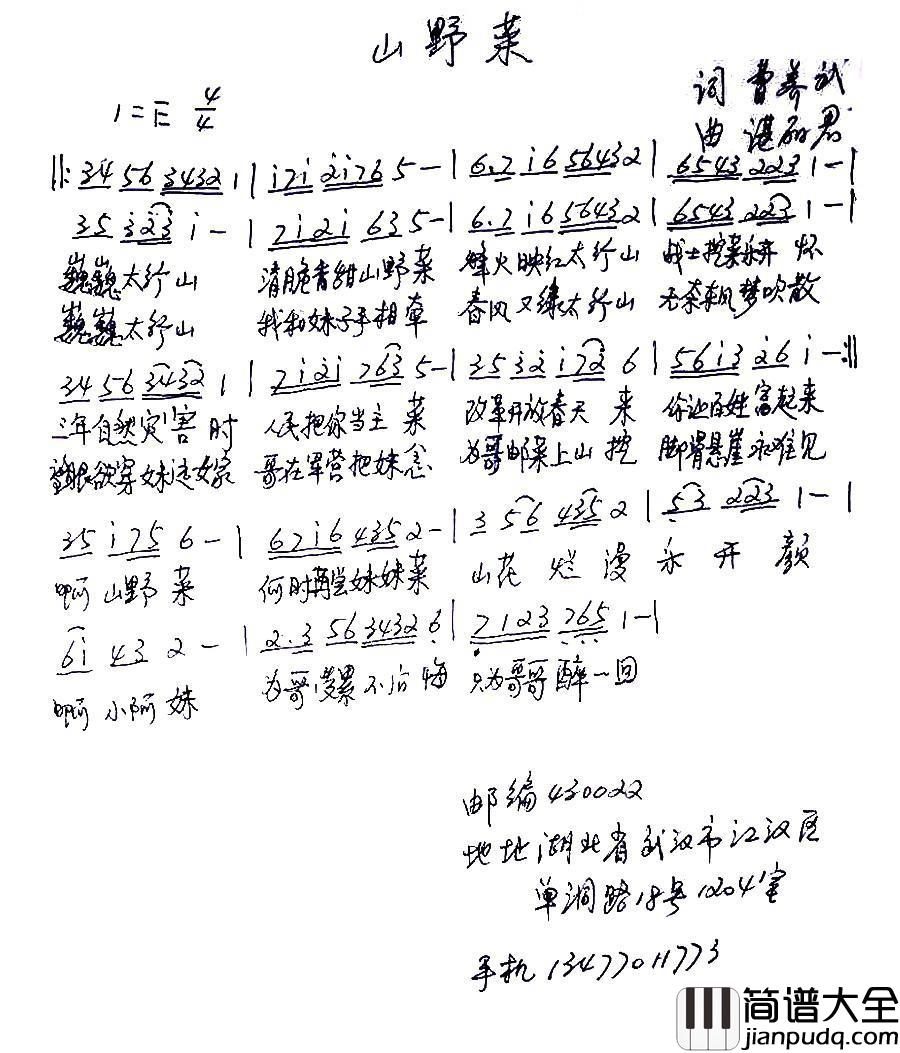 山野菜
词 曹养武
1=E 4/4
曲 谌丽君
‖: 34 56 3432 1 | i7i 2i76 5 — | 6.7 i6 56432 | 6543 223 1 — |
35 323 i — | 7i2i 635 — | 6.7 i6 56432 | 6543 223 1 — |
巍巍太行山 清脆香甜山野菜 烽火映红太行山 战士挖菜乐开怀
巍巍太行山 我和妹子手相牵 春风又绿太行山 无奈梦吹散
34 56 3432 1 | 7i2i 763 5 — | 35 32 i72 6 | 56i3 26 i — :‖
三年自然灾害时 人民把你当主菜 改革开放春天来 你让百姓富起来
望眼欲穿妹远嫁 哥在军营把妹念 为哥邮菜上山挖 脚滑悬崖永难见
35 i75 6 — | 67i6 435 2 — | 3 56 435 2 | 53 223 1 — |
啊 山野菜 何时再尝妹妹菜 山花烂漫乐开颜
6i 43 2 — | 2.3 56 3432 6 | 7123 765 1 — |
啊 小阿妹 为哥受累不后悔 只为哥哥醉一回
邮编 430022
地址 湖北省武汉市江汉区
单洞路18号1204室
手机 13477011773
简谱大全
jianpudq.com